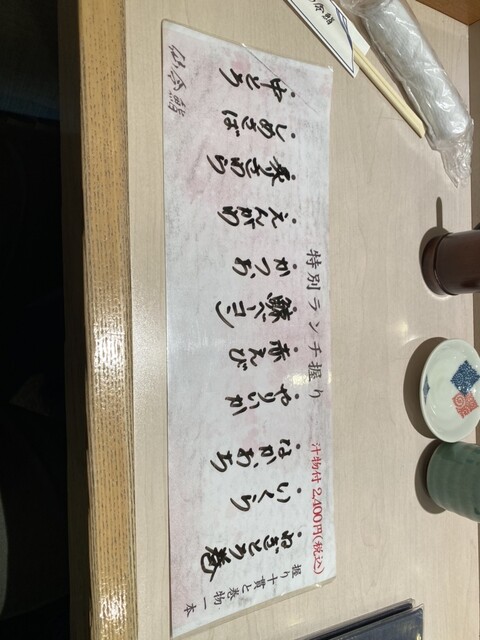 特別ランチ握り 汁物付 2,400円(税込)
・中とろ
・しめさば
・春さわら
・えんがわ
・かつお
・鯨ベーコン
・赤えび
・やりいか
・なかおち
・いくら
・ねぎとろ巻
握り十貫と巻物一本
仙令鮨
令鮨